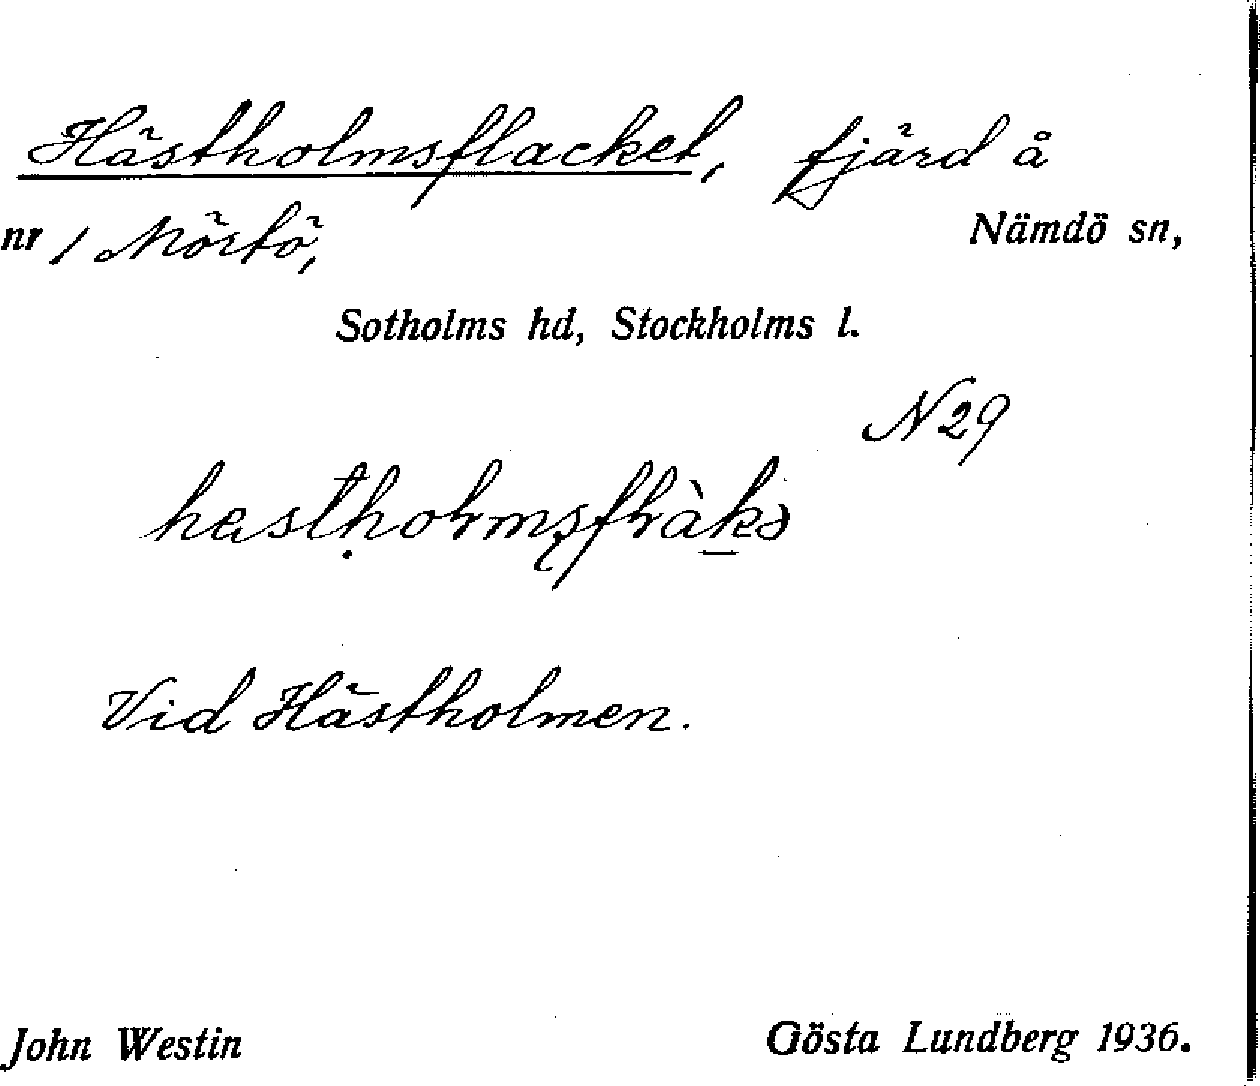 Hästholmsflacket, fjärd å
nr 1 Mörtö, Nämdö sn,
Sotholms hd, Stockholms l.
N 29
Vid Hästholmen.
John Westin Gösta Lundberg 1936.